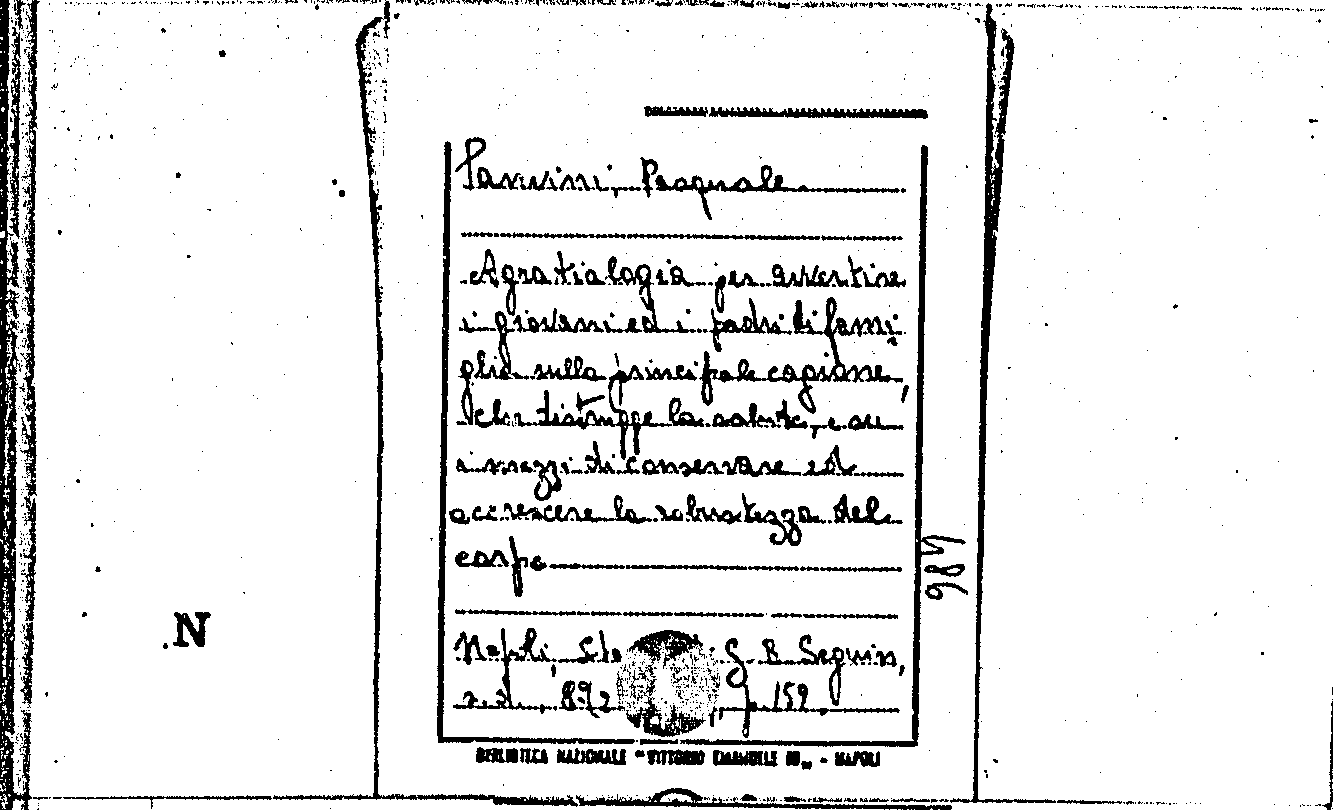 Pannini, Pasquale
Agratialogia per avvertire
i giovani ed i padri di fami
glia sulla principale cagione,
che distrugge la salute, e su
i mezzi di conservare ed
accrescere la robustezza del
corpo
987
N
Napoli, G. B. Seguin,
p. 159.
BIBLIOTECA NAZIONALE "VITTORIO EMANUELE III" - NAPOLI